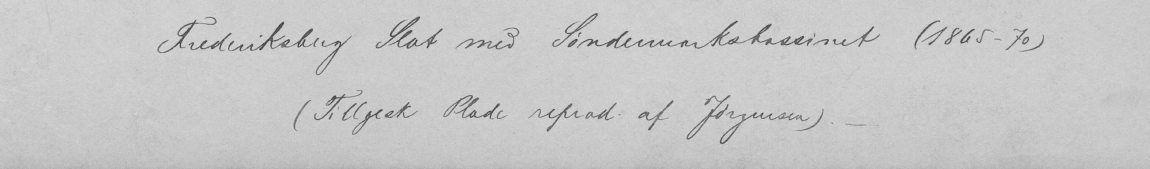 Frederiksberg Slot med Søndermarksbassinet (1865-70)
(Tillgesk Plade reprod. af Jørgensen). —